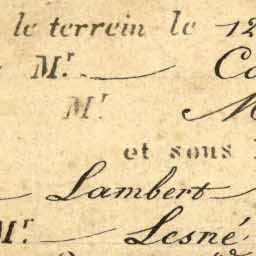 le terrein le 12
Mr. Co
Mr. M
et sous
Lambert
Mr. Lesné